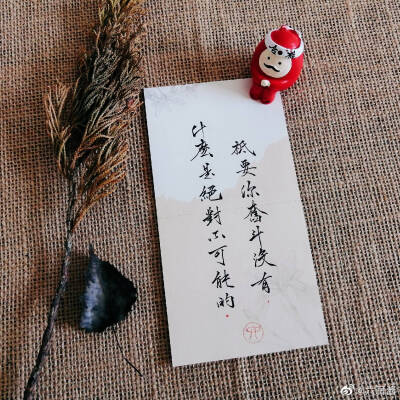 祇要你奮斗沒有
什麼是絕對不可能的。